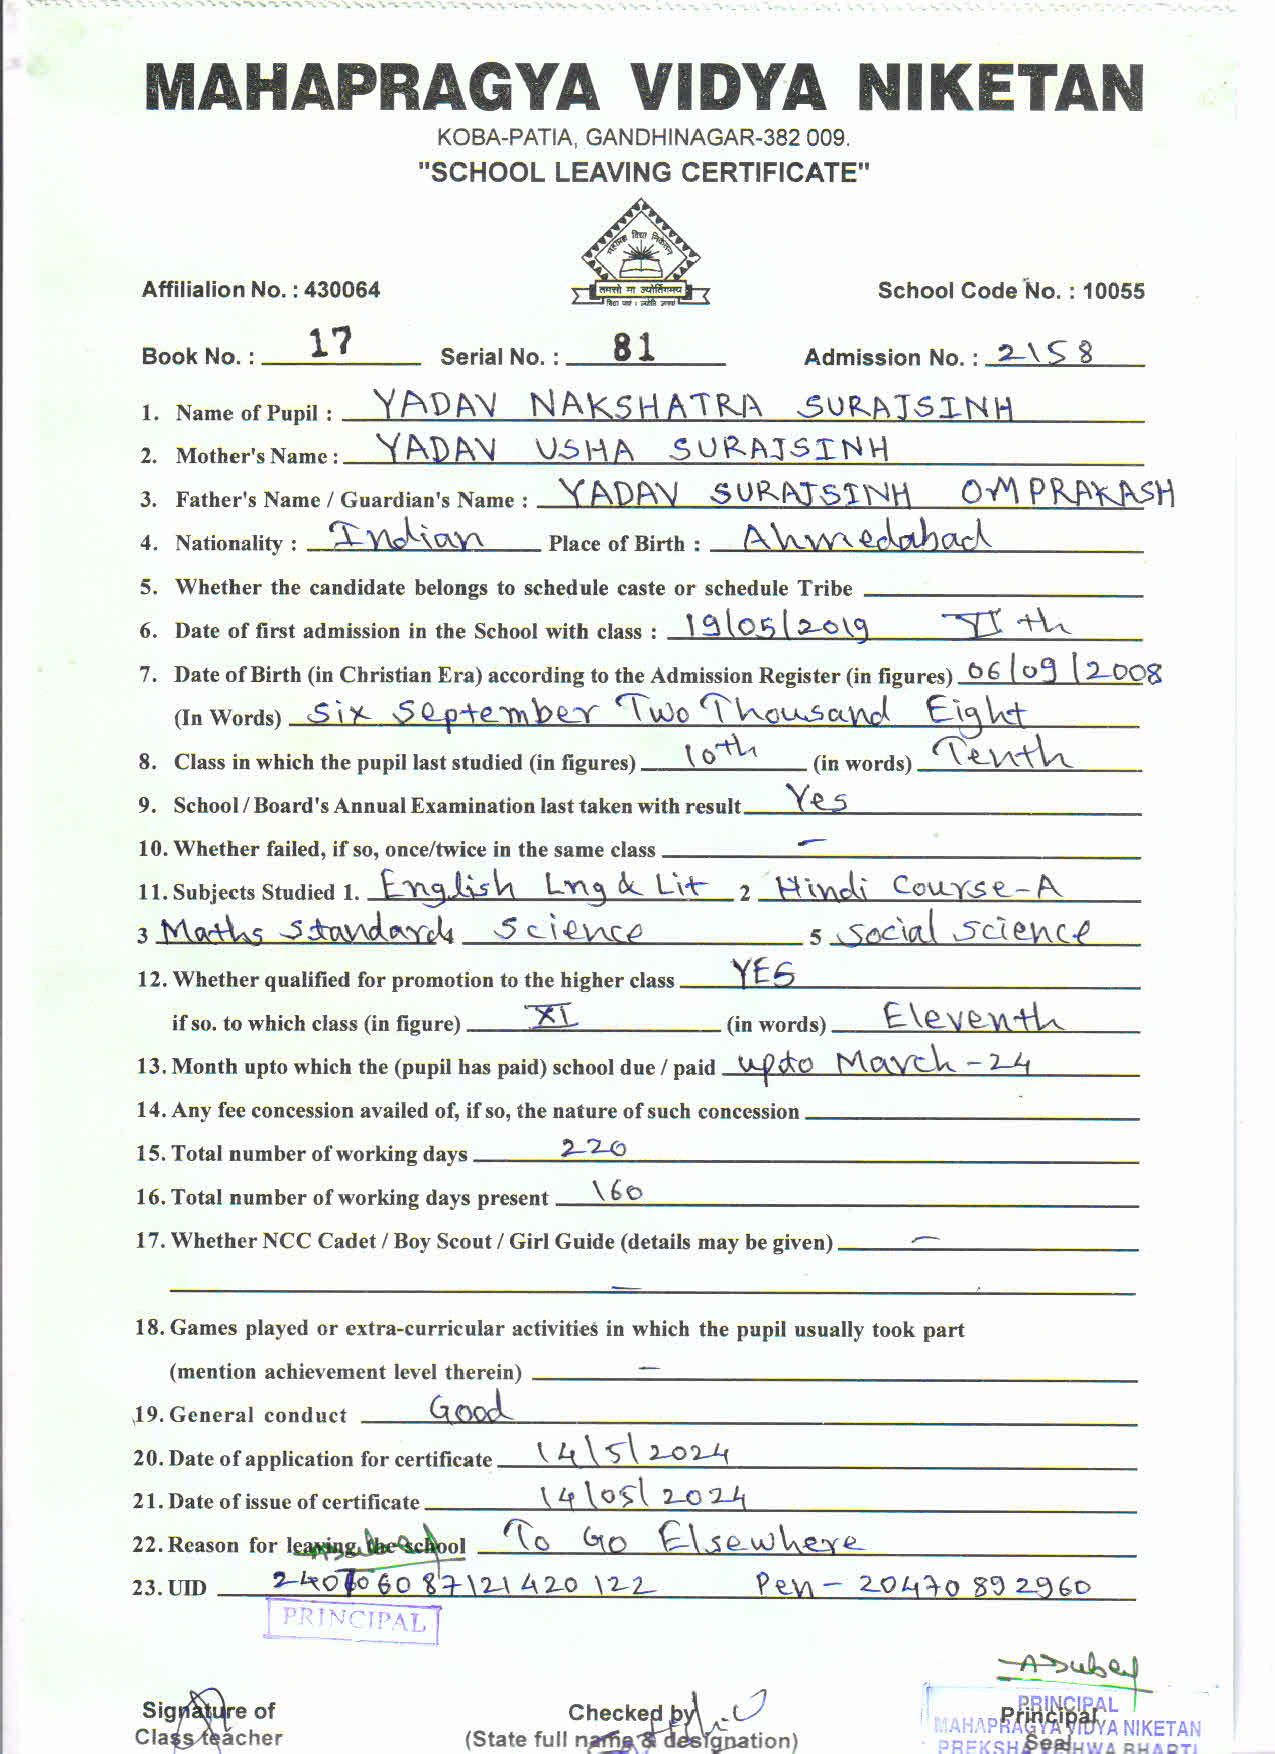 MAHAPRAGYA VIDYA NIKETAN
KOBA-PATIA, GANDHINAGAR-382 009.
"SCHOOL LEAVING CERTIFICATE"
महाप्रज्ञ विद्या निकेतन
तमसो मा ज्योतिर्गमय
Affilialion No. : 430064 School Code No. : 10055
Book No. : 17 Serial No. : 81 Admission No. : 2158
1. Name of Pupil : YADAV NAKSHATRA SURAJSINH
2. Mother's Name : YADAV USHA SURAJSINH
3. Father's Name / Guardian's Name : YADAV SURAJSINH OMPRAKASH
4. Nationality : Indian Place of Birth : Ahmedabad
5. Whether the candidate belongs to schedule caste or schedule Tribe
6. Date of first admission in the School with class : 19/05/2019 VI th
7. Date of Birth (in Christian Era) according to the Admission Register (in figures) 06/09/2008
(In Words) Six September Two Thousand Eight
8. Class in which the pupil last studied (in figures) 10th (in words) Tenth
9. School / Board's Annual Examination last taken with result Yes
10. Whether failed, if so, once/twice in the same class —
11. Subjects Studied 1. English Lng & Lit 2 Hindi Course-A
3 Maths Standard 4 Science 5 Social Science
12. Whether qualified for promotion to the higher class YES
if so. to which class (in figure) XI (in words) Eleventh
13. Month upto which the (pupil has paid) school due / paid upto March-24
14. Any fee concession availed of, if so, the nature of such concession
15. Total number of working days 220
16. Total number of working days present 160
17. Whether NCC Cadet / Boy Scout / Girl Guide (details may be given) —
—
18. Games played or extra-curricular activities in which the pupil usually took part
(mention achievement level therein) —
19. General conduct Good
20. Date of application for certificate 14/5/2024
21. Date of issue of certificate 14/05/2024
22. Reason for leaving the school To Go Elsewhere
23. UID 240606087121420122 Pen- 20470892960
PRINCIPAL
ADubey
Signature of Checked by Principal
Class teacher (State full name & designation) Seal
PRINCIPAL
MAHAPRAGYA VIDYA NIKETAN
PREKSHA VISHWA BHARTI